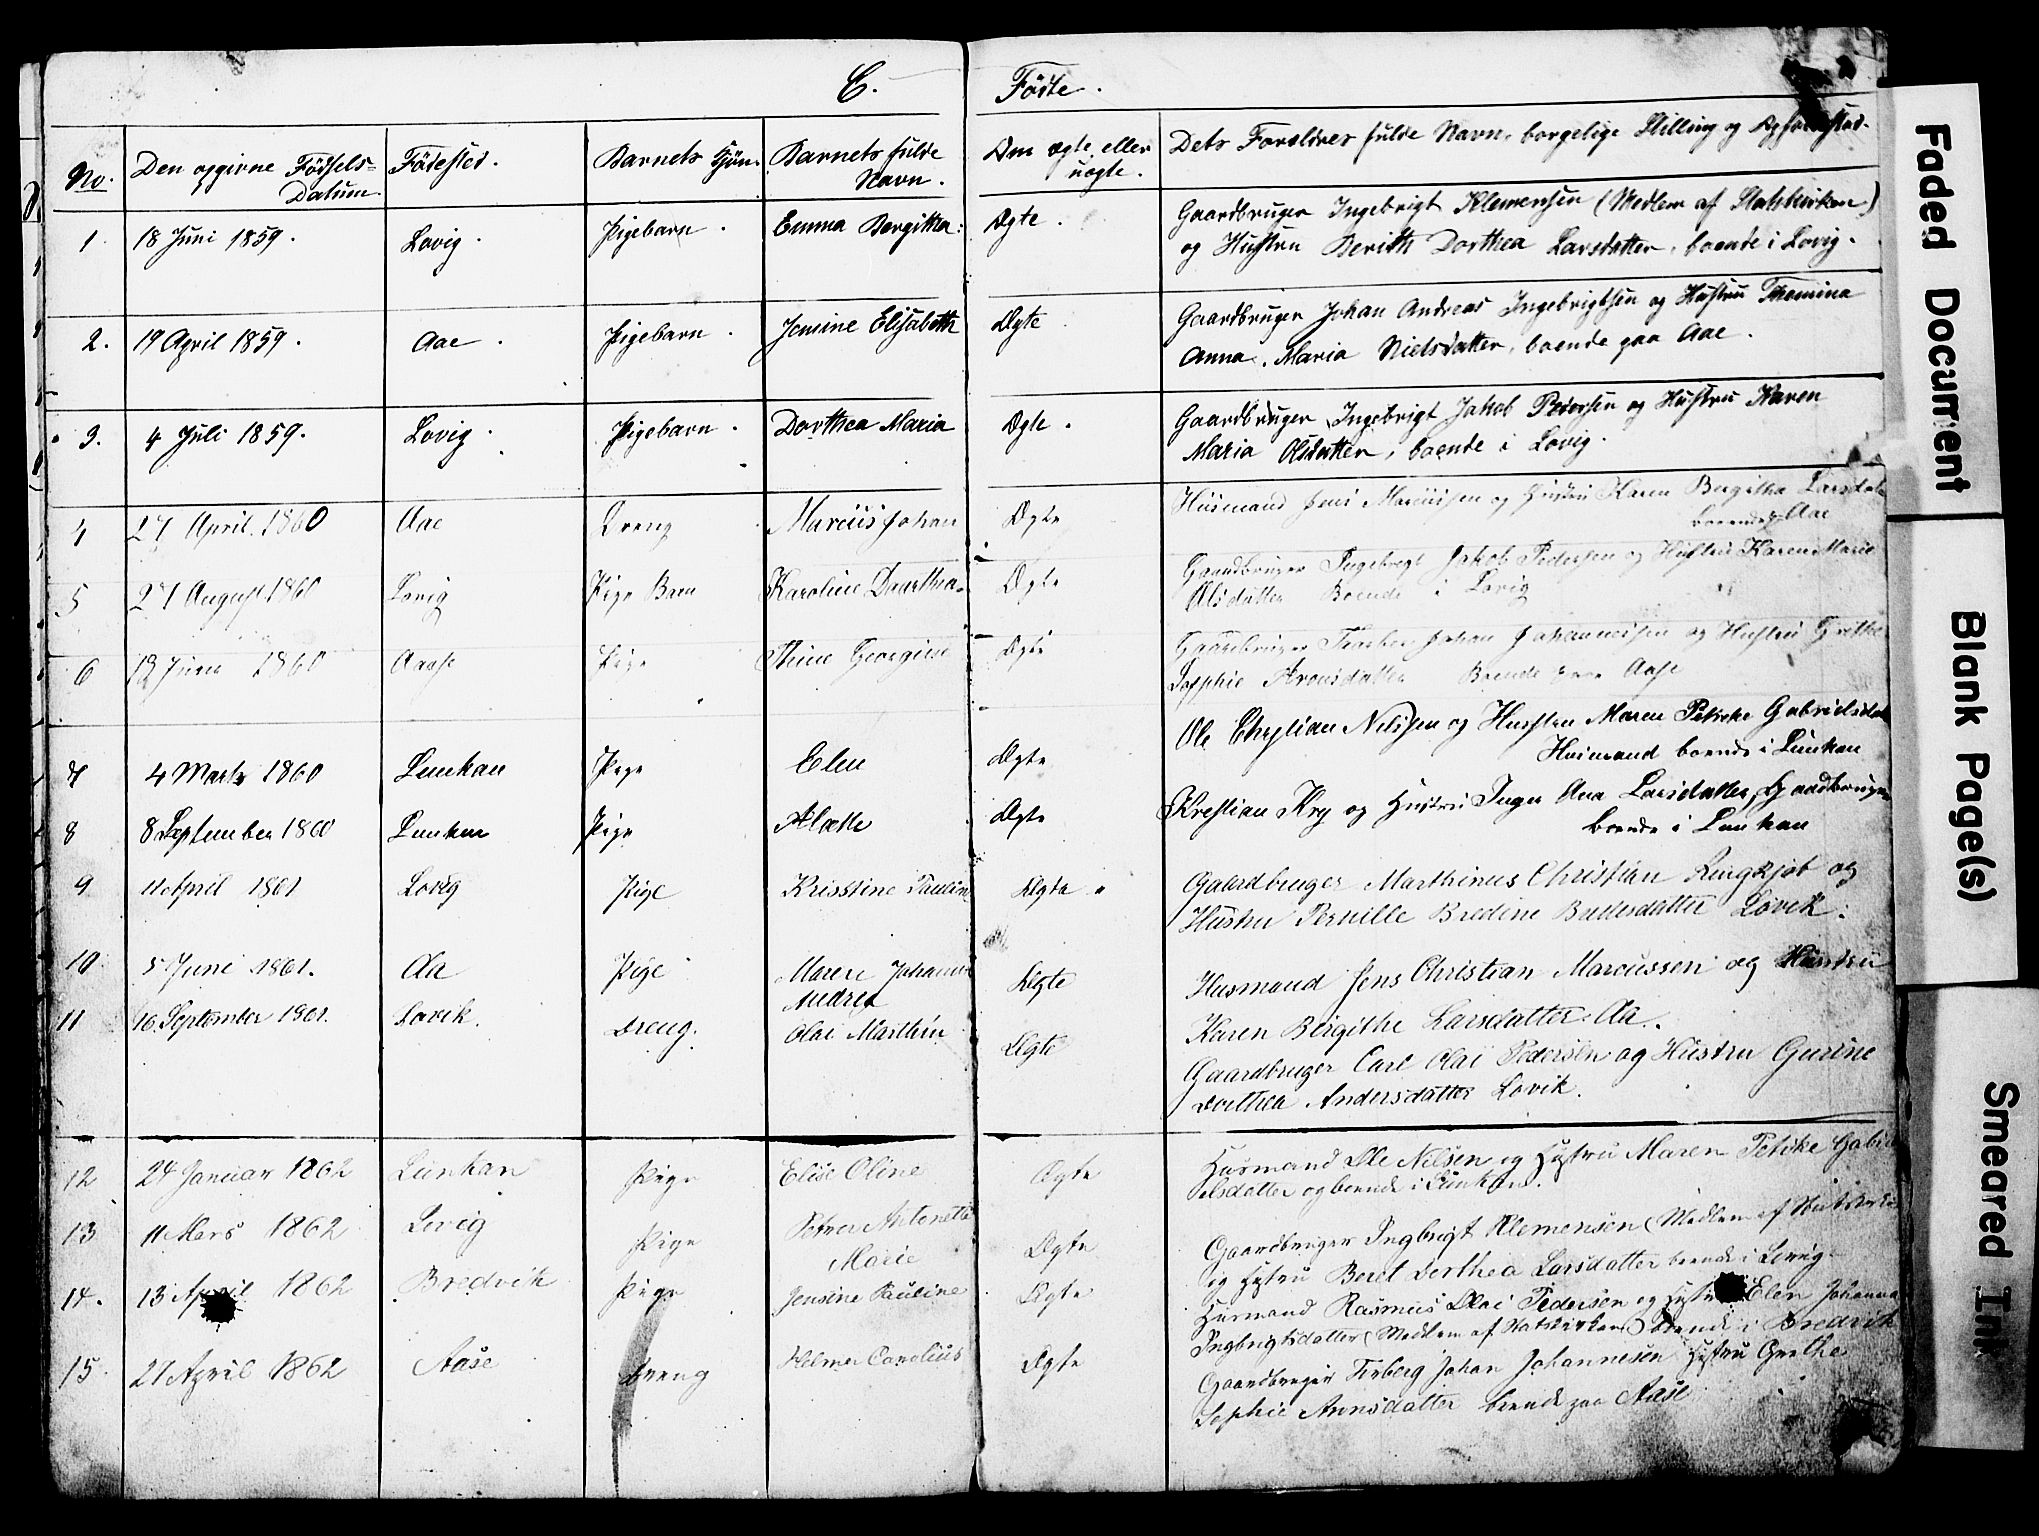 C. Fødte.
No. Den opgivne Fødsels- Datum. Fødested. Barnets Kjøn. Barnets fulde Navn. Om ægte eller uægte. Dets Forældres fulde Navn, borgelige Stilling og Opholdssted.
1. 18 Juni 1859. Lovig. Pigebarn. Emma Bergitha. Ægte. Gaardbruger Ingebrigt Klemensen (Medlem af Statskirken)
og Hustru Berith Dorthea Larsdatter, boende i Lovig.
2. 19 April 1859. Aae. Pigebarn. Jensine Elisabeth Ægte Gaardbruger Johan Andreas Ingebrigtsen og Hustru Thomina
Anna Maria Nielsdatter, boende paa Aae.
3. 4 Juli 1859. Lovig. Pigebarn. Dorthea Maria Ægte. Gaardbruger Ingebrigt Jakob Pedersen og Hustru Karen
Maria Olsdatter, boende i Lovig.
4 27 April 1860 Aae Dreng Marcus Johan Ægte Husmand Jens Marcussen og Hustru Karen Bergitha Larsdat
boende Aae
5 27 August 1860 Lovig Pige Barn Karoline Daarthea Ægte Gaardbruger Ingebregt Jakob Pedersen og Hustru Karen Marie
Olsdatter Boende i Lovig
6 Juni 1860 Aaase Pige Stine Georgine Ægte Gaardbruger Johan Johannesen og Hustru Grethe
Sophie Aronsdatter Boende paa Aase
7 4 Marts 1860 Lunkan Pige Elen Ægte Ole Christian Nilssen og Hustru Maren Petrike Gabrielsdat
Husmand boende i Lunkan
8 8 September 1860 Lunkan Pige Alette Ægte Krestian Kry og Hustru Inger Ana Larsdatter, Gaardbruger
boende i Lunkan
9 11 April 1861 Lovig Pige Krisstine Paulin Ægte Gaardbruger Marthinus Christian Ringkjøb og
Hustru Pernille Bredine Lovik.
10. 5 Juni 1861. Aa Pige Maren Johanna Andrea Ægte Husmand Jens Christian Marcussen og Hustru
Karen Birgithe Larsdatter Aa.
11 16. September 1861. Lovik. Dreng. Olai Marthin Ægte Gaardbruger Carl Olai Pedersen og Hustru Gurine
Dorthea Andersdatter Lovik.
12 24 Januar 1862 Lunkan Pige Elise Oline Ægte Husmand Ole Nilsen og Hustru Maren Petrike Gabri
elsdatter og boende i Lunkan.
13 11 Mars 1862 Lovig Pige Petrea Antonette Marie Ægte Gaardbruger Ingbrigt Klemensen (Medlem af
og Hustru Beret Dorthea Larsdatter boende i Lovig.
14. 13 April 1862 Bredvik Pige Jensine Pauline Ægte Husmand Rasmus Olai Pedersen og Hustru Elen Johanna
Ingbrigtsdatter (Medlem af Statskirken) boende i Bredvik
15. 27 April 1862 Aase Dreng Helmer Carolius Ægte Gaardbruger Torberg Johan Johannesen Hustru Grethe
Sophie Aronsdatter boende paa Aase
Faded Document
Blank Page(s)
Smeared Ink